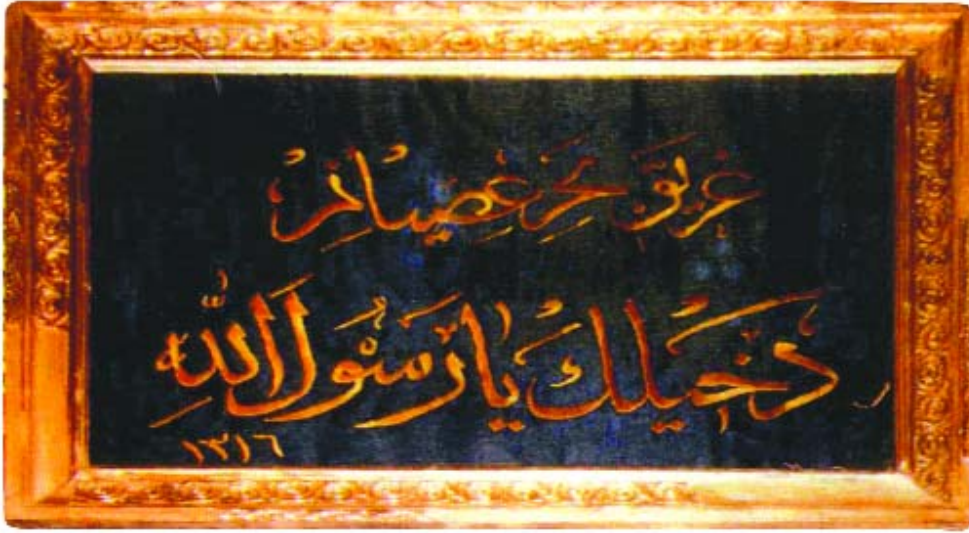 غريق بحر عصيانم
دخيلك يا رسول الله
١٣١٦